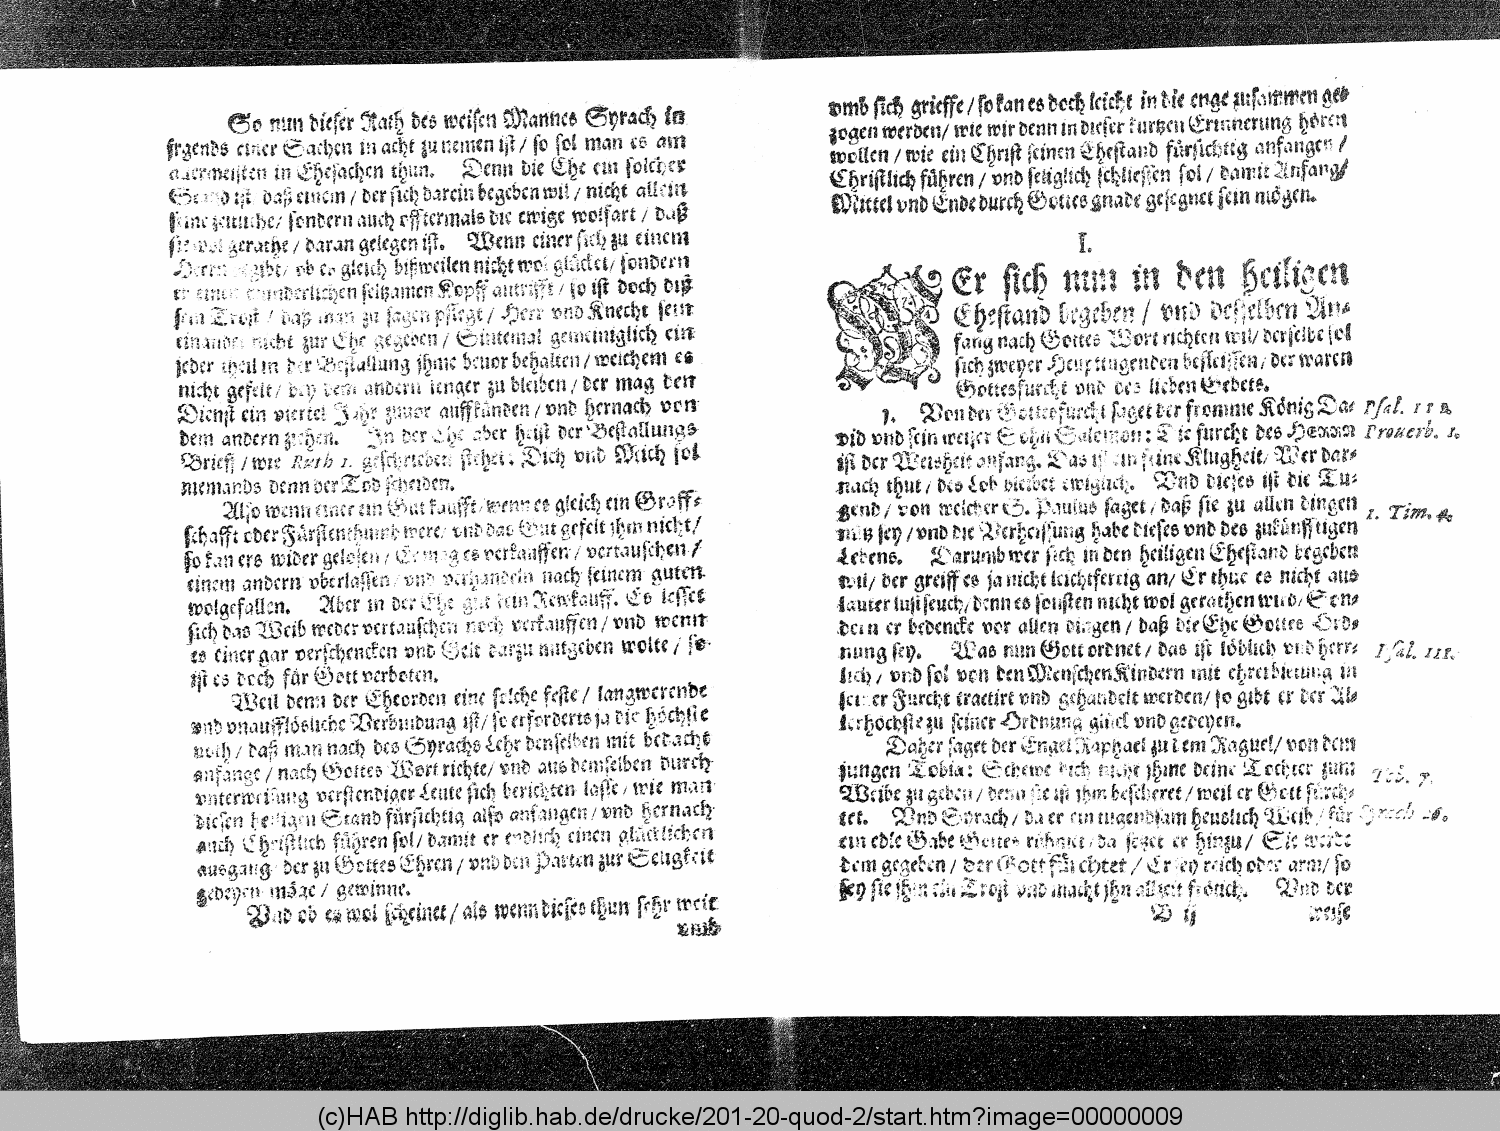 So nun dieser Rath des weisen Mannes Syrach in
jrgends einer Sachen in acht zu nemen ist / so sol man es am
allermeisten in Ehesachen thun. Denn die Ehe ein solcher
Stand ist / daß einem / der sich darein begeben wil / nicht allein
seine zeitliche / sondern auch offtermals die ewige wolfart / daß
sie wol gerathe / daran gelegen ist. Wenn einer sich zu einem
Herrn gibt / ob es gleich bißweilen nicht wol glücket / sondern
er einen wunderlichen seltzamen Kopff antrifft / so ist doch diß
sein Trost / daß man zu sagen pflegt / Herr vnd Knecht sein
einander nicht zur Ehe gegeben / Sintemal gemeiniglich ein
jeder theil in der Bestallung jhme beuor behalten / welchem es
nicht gefelt / bey dem andern lenger zu bleiben / der mag den
Dienst ein viertel Jahr zuuor auffkünden / vnd hernach von
dem andern ziehen. In der Ehe aber heist der Bestallungs
Brieff / wie Ruth 1. geschrieben stehet: Dich vnd Mich sol
niemands denn der Tod scheiden.
Also wenn einer ein Gut kaufft / wenn es gleich ein Graff-
schafft oder Fürstenthumb were / vnd das Gut gefelt jhm nicht /
so kan ers wider gelosen / Er mag es verkauffen / vertauschen /
einem andern vberlassen / vnd verhandeln nach seinem guten
wolgefallen. Aber in der Ehe gilt kein Rewkauff. Es lesset
sich das Weib weder vertauschen noch verkauffen / vnd wenn
es einer gar verschencken vnd Gelt darzu nutgeben wolte / so
ist es doch für Gott verboten.
Weil denn der Eheorden eine solche feste / langwerende
vnd vnaufflösliche Verbindung ist / so erforderts ja die höchste
noth / daß man nach des Syrachs Lehr denselben mit bedacht
anfange / nach Gottes Wort richte / vnd aus demselben durch
vnterweisung verstendiger Leute sich berichten lasse / wie man
diesen heiligen Stand fürsichtig also anfangen / vnd hernach
auch Christlich führen sol / damit er endlich einen glücklichen
ausgang / der zu Gottes Ehren / vnd den Parten zur Seligkeit
gedeyen möge / gewinne.
Vnd ob es wol scheinet / als wenn dieses thun sehr weit
vmb
vmb sich grieffe / so kan es doch leicht in die enge zusammen ge-
zogen werden / wie wir denn in dieser kurtzen Erinnerung hören
wollen / wie ein Christ seinen Ehestand fürsichtig anfangen /
Christlich führen / vnd seliglich schliessen sol / damit Anfang /
Mittel vnd Ende durch Gottes gnade gesegnet sein mögen.
I.
WEr sich nun in den heiligen
Ehestand begeben / vnd desselben An-
fang nach Gottes Wort richten wil / derselbe sol
sich zweyer Heupttugenden befleissen / der waren
Gottesfurcht vnd des lieben Gebets.
1. Von der Gottesfurcht saget der fromme König Da- Psal. 112.
vid vnd sein weiser Sohn Salomon: Die furcht des HERRN Prouerb. 1.
ist der Weisheit anfang. Das ist ein feine Klugheit / Wer dar-
nach thut / des Lob bleibet ewiglich. Vnd dieses ist die Tu-
gend / von welcher S. Paulus saget / daß sie zu allen dingen 1. Tim. 4.
nütz sey / vnd die Verheissung habe dieses vnd des zukünfftigen
Lebens. Darumb wer sich in den heiligen Ehestand begeben
wil / der greiff es ja nicht leichtfertig an / Er thue es nicht aus
lauter lustseuch / denn es sonsten nicht wol gerathen wird / Son-
dern er bedencke vor allen dingen / daß die Ehe Gottes Ord-
nung sey. Was nun Gott ordnet / das ist löblich vnd herr- Psal. 111.
lich / vnd sol von den MenschenKindern mit ehrerbietung in
seiner Furcht tractirt vnd gehandelt werden / so gibt er der Al-
lerhöchste zu seiner Ordnung glück vnd gedeyen.
Daher saget der Engel Raphael zu dem Raguel / von dem
jungen Tobia: Schewe dich nicht jhme deine Tochter zum Tob. 7.
Weibe zu geben / denn sie ist jhm bescheret / weil er Gott fürch-
tet. Vnd Syrach / da er ein tugendsam heuslich Weib / für Syrach 26.
ein edle Gabe Gottes rühmet / da setzet er hinzu / Sie werde
dem gegeben / der Gott fürchtet / Er sey reich oder arm / so
sey sie jhm ein Trost vnd macht jhn allzeit frölich. Vnd der
B ij weise
(c)HAB http://diglib.hab.de/drucke/201-20-quod-2/start.htm?image=00000009